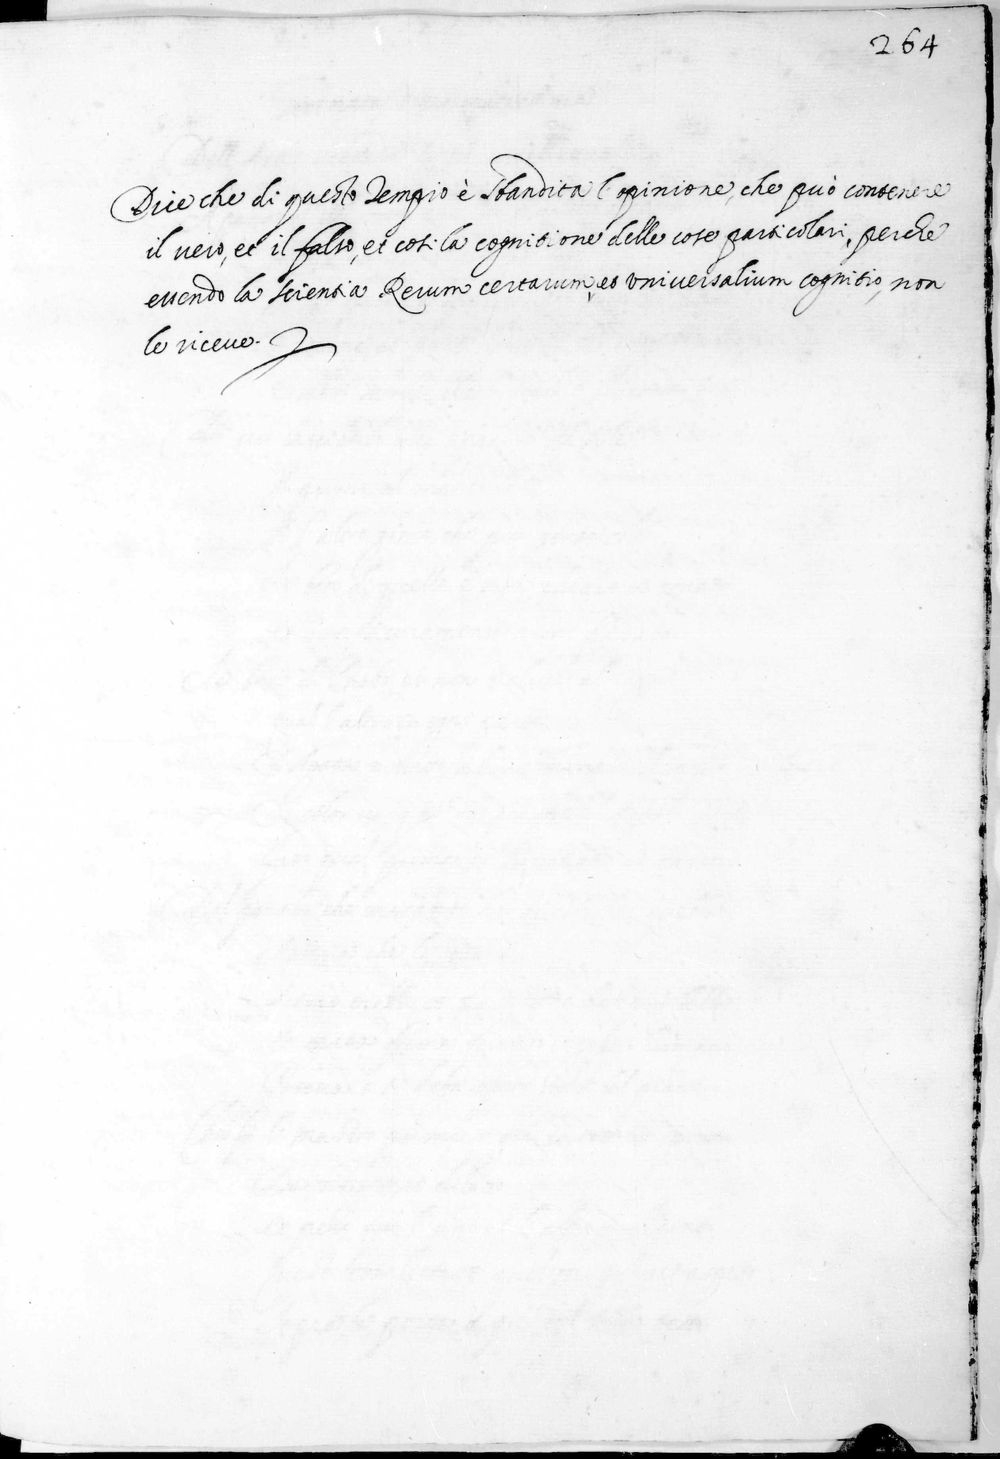 264
Dice che di questo Tempio è sbandita l'opinione, che può contenere
il vero, et il falso, et cosi la cognitione delle cose particolari, perche
essendo la scientia Rerum certarum, et vniuersalium cognitio, non
le riceue.